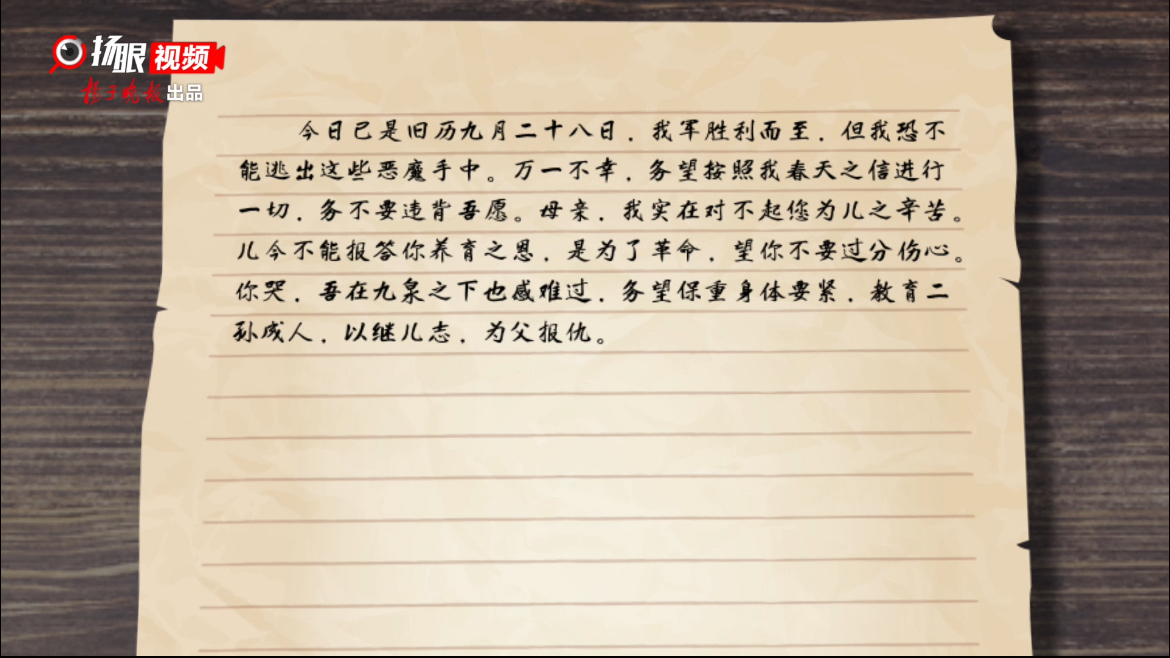 扬眼视频
扬子晚报出品
今日已是旧历九月二十八日，我军胜利而至，但我恐不
能逃出这些恶魔手中。万一不幸，务望按照我春天之信进行
一切，务不要违背吾愿。母亲，我实在对不起您为儿之辛苦。
儿今不能报答你养育之恩，是为了革命，望你不要过分伤心。
你哭，吾在九泉之下也感难过，务望保重身体要紧，教育二
孙成人，以继儿志，为父报仇。